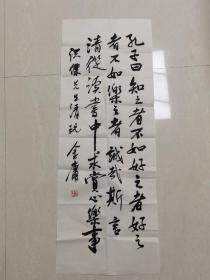 孔子曰知之者不如好之者好之
者不如樂之者誠哉斯言
請從讀書中求賞心樂事
洪傑先生清玩 金庸